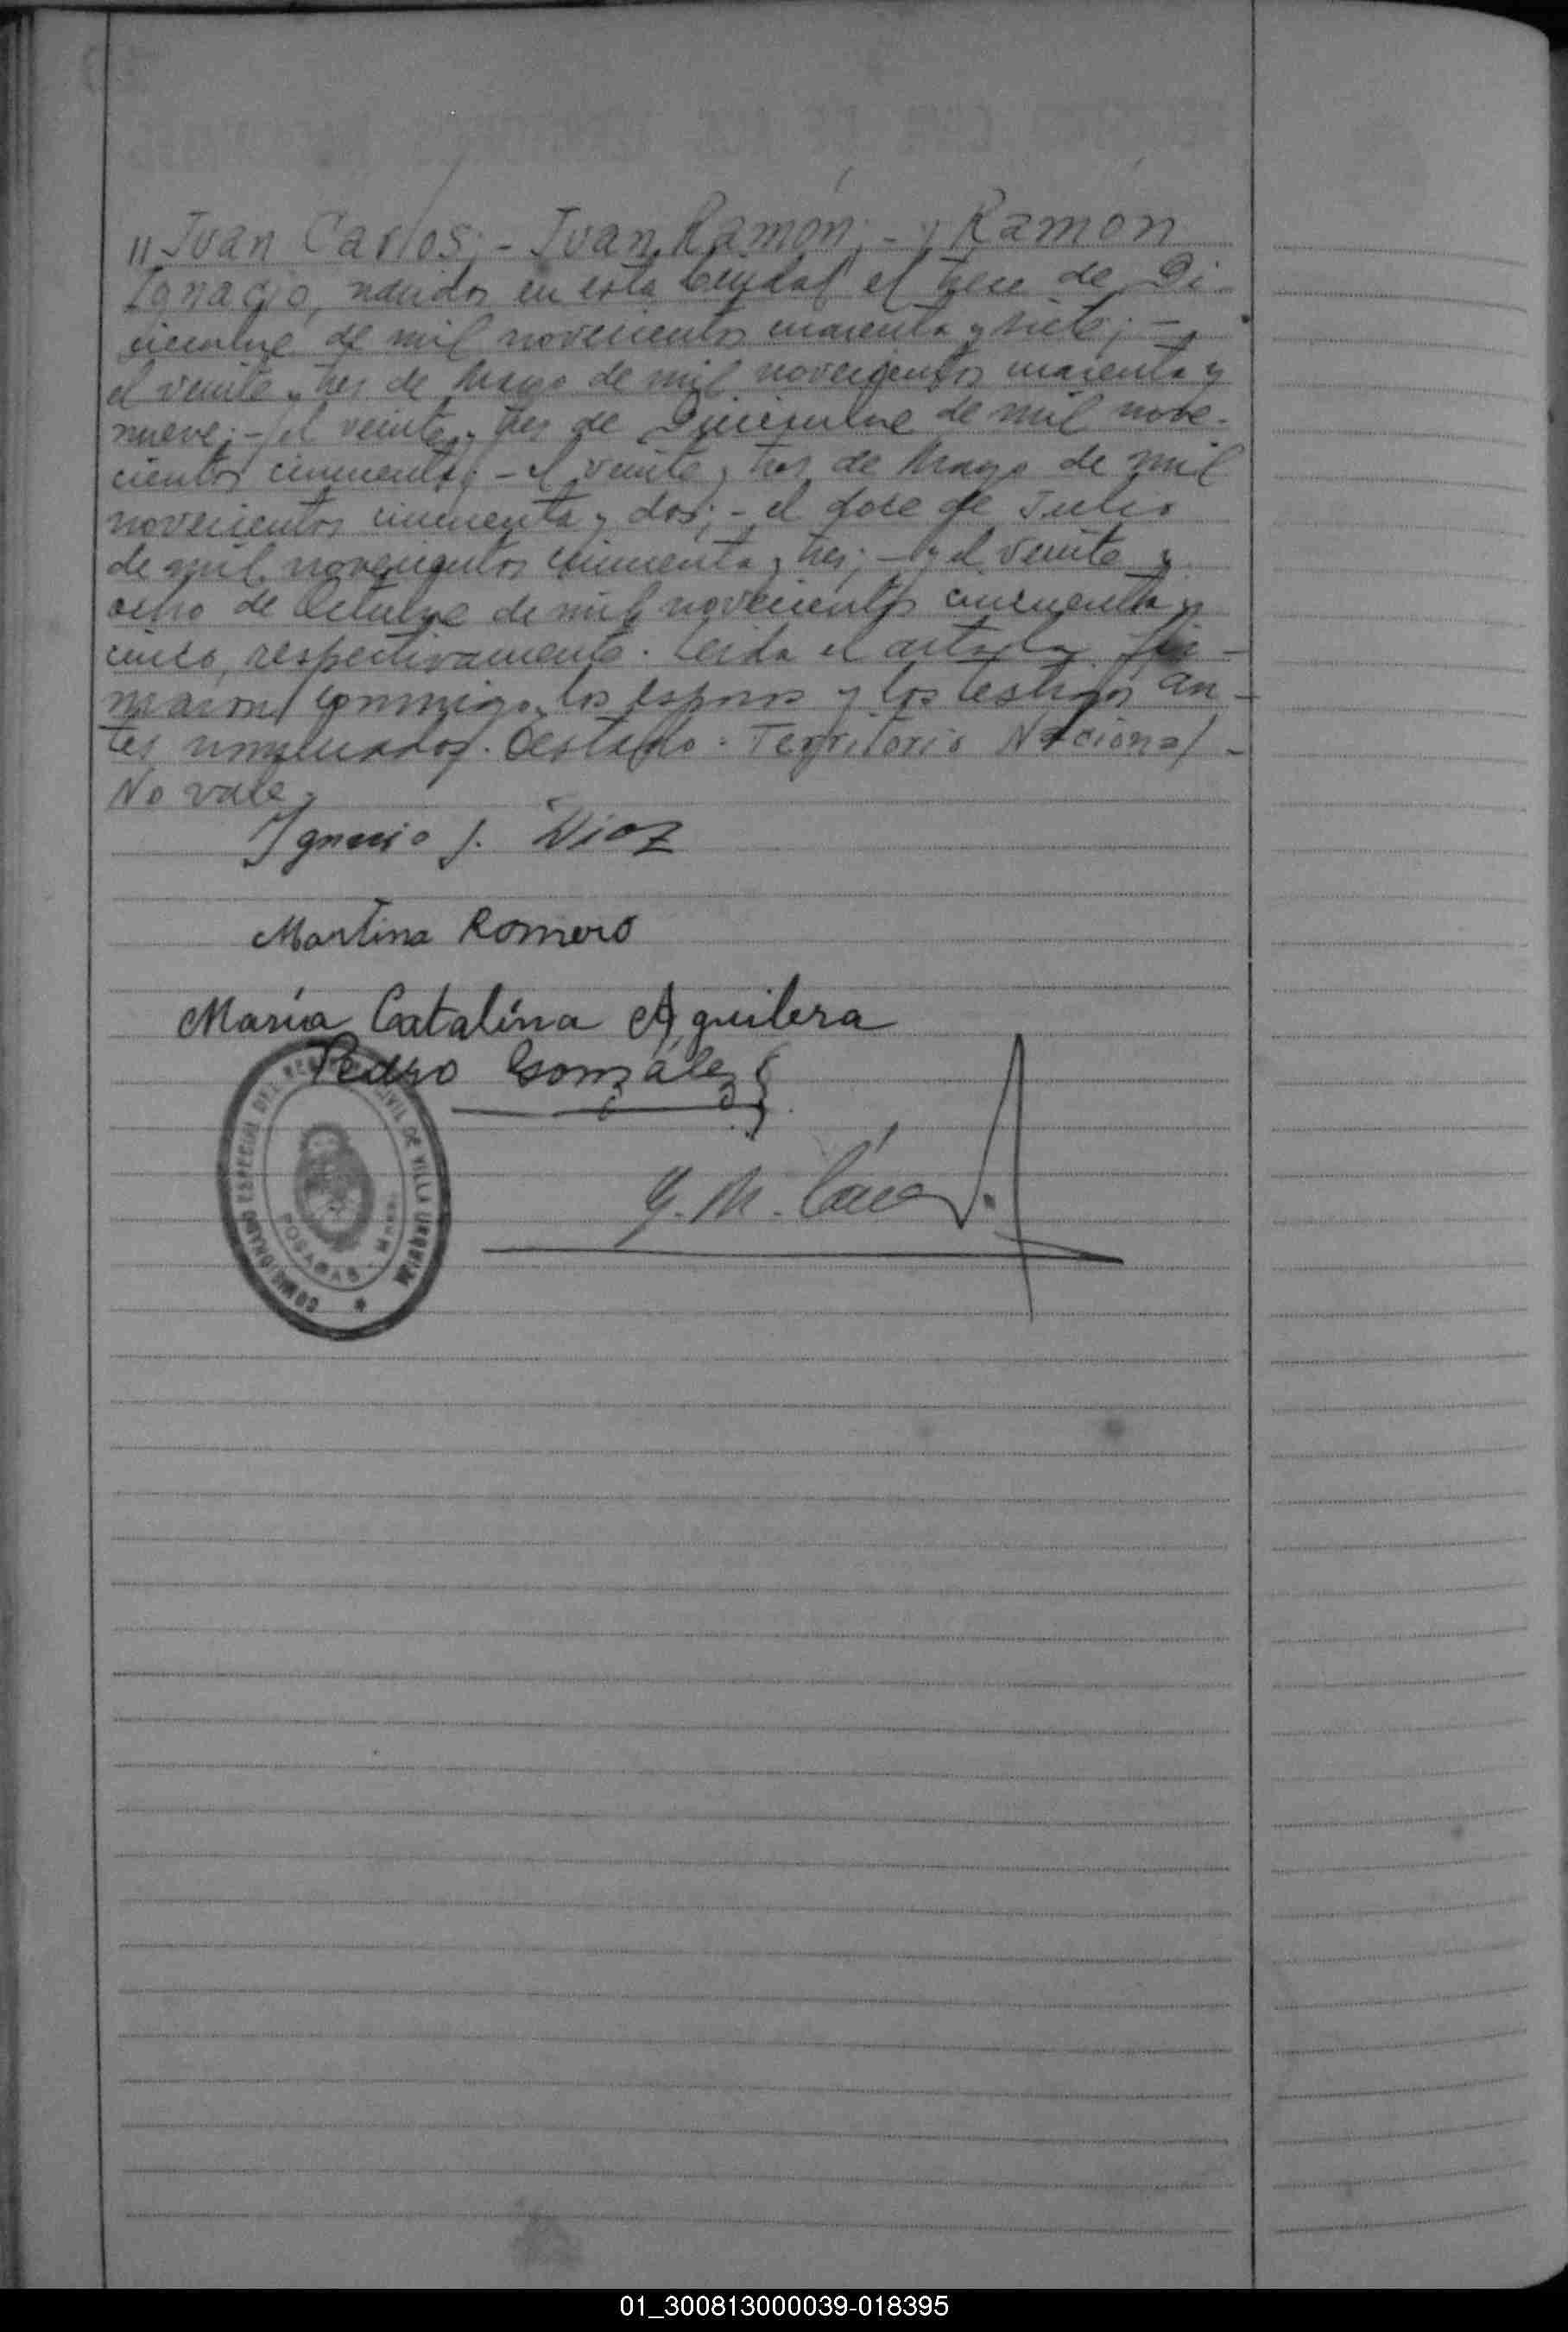 " Juan Carlos; - Juan Ramón; - y Ramón
Ignacio, nacidos en esta Ciudad el trece de Di-
ciembre de mil novecientos cuarenta y siete; -
el veinte y tres de Mayo de mil novecientos cuarenta y
nueve; - el veinte y tres de Diciembre de mil nove-
cientos cincuenta; - el veinte y tres de Mayo de mil
novecientos cincuenta y dos; - el doce de Julio
de mil novecientos cincuenta y tres; - y el veinte y
ocho de Octubre de mil novecientos cincuenta y
cinco, respectivamente. Leída el acta la fir-
maron conmigo, los esposos y los testigos an-
tes nombrados. Testado: Territorio Nacional -
No vale.
Ignacio J. Diaz
Martina Romero
María Catalina Aguilera
Pedro González
G. M.
COMISIONADO ESPECIAL DEL REGISTRO CIVIL DE VILLA URQUIZA
POSADAS - Mnes.
01_300813000039-018395